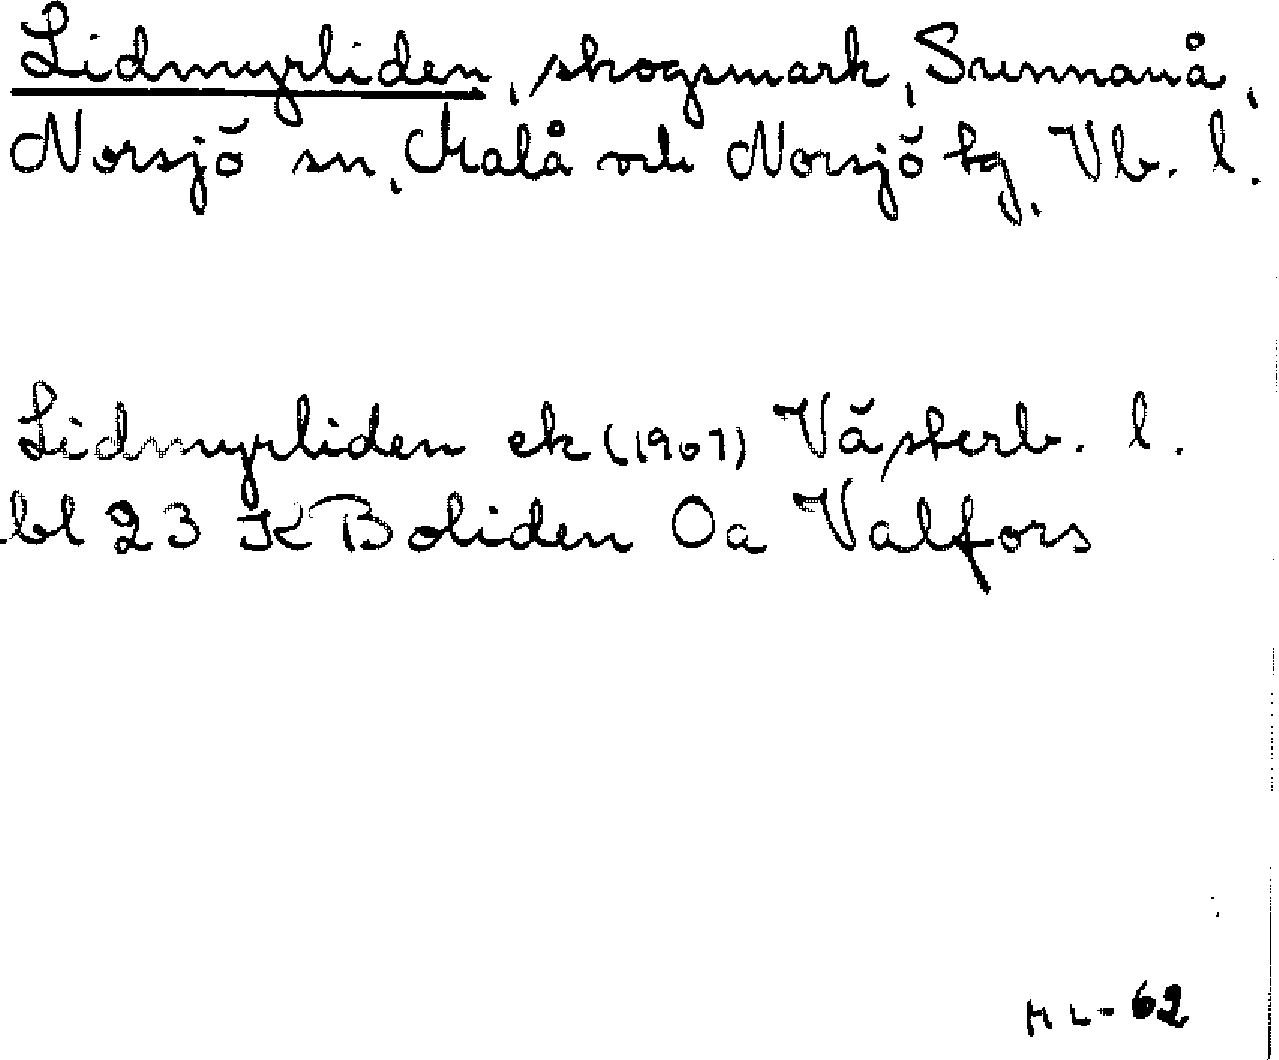 Lidmyrliden, skogsmark, Sunnanå,
Norsjö sn, Malå och Norsjö tg, Vb. l.
Lidmyrliden ek (1967) Västerb. l.
bl 23 K Boliden 0a Valfors
ML-62